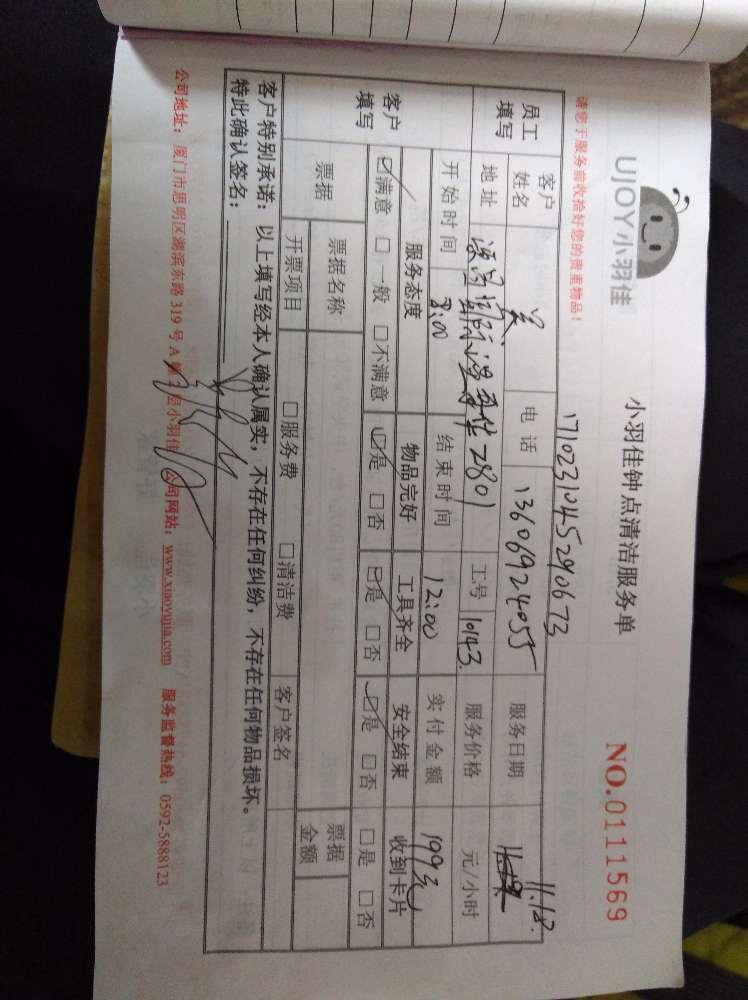 UJOY小羽佳
小羽佳钟点清洁服务单
NO.0111569
请您于服务前收拾好您的贵重物品!
1710231045290673
员工填写
客户姓名
电话 13606924055
服务日期 11.18.
地址 2801
工号 10143.
服务价格 元/小时
开始时间 8:00
结束时间 12:00
实付金额 199元
客户填写
服务态度 物品完好 工具齐全 安全结束 收到卡片
☑满意 □一般 □不满意 ☑是 □否 ☑是 □否 ☑是 □否 □是 □否
票据 票据名称 票据金额
开票项目 □服务费 □清洁费 客户签名
客户特别承诺:以上填写经本人确认属实,不存在任何纠纷,不存在任何物品损坏。
特此确认签名:
公司地址:厦门市思明区湖滨东路319号A 小羽佳 公司网站:www.xiaoyujia.com 服务监督热线:0592-5888123